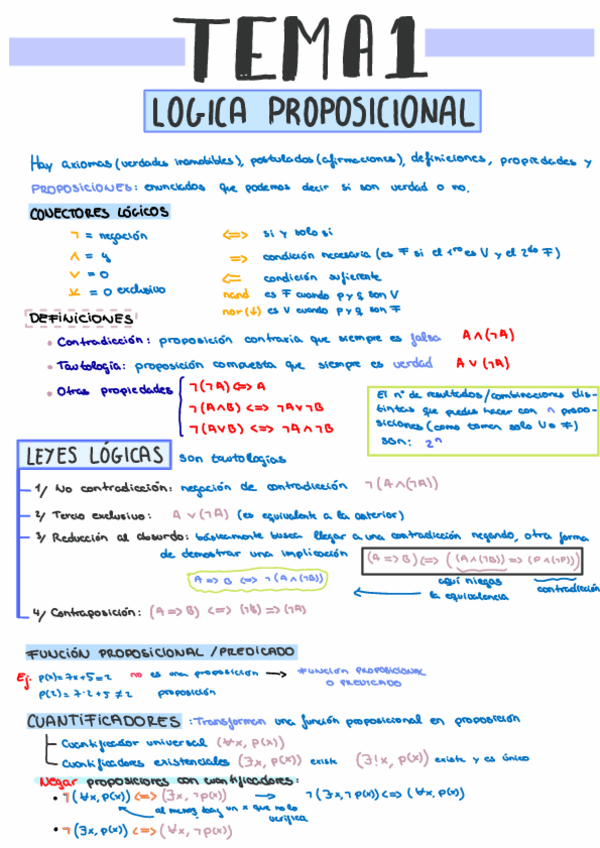 TEMA 1
LOGICA PROPOSICIONAL
Hay axiomas (verdades inamobibles), postulados (afirmaciones), definiciones, propiedades y
PROPOSICIONES: enunciados que podemos decir si son verdad o no.
CONECTORES LÓGICOS
¬ = negación
∧ = y
∨ = o
⊻ = o exclusivo
<=> si y solo si
=> condición necesaria (es F si el 1ro es V y el 2do F)
<= condición suficiente
nand es F cuando p y q son V
nor (↓) es V cuando p y q son F
DEFINICIONES
• Contradicción: proposición contraria que siempre es falsa A ∧ (¬A)
• Tautología: proposición compuesta que siempre es verdad A ∨ (¬A)
• Otras propiedades
¬(¬A) <=> A
¬(A∧B) <=> ¬A∨¬B
¬(A∨B) <=> ¬A∧¬B
El nº de resultados/combinaciones dis-
tintas que puedes hacer con n propo-
siciones (como toman solo V o F)
son: 2ⁿ
LEYES LÓGICAS son tautologías
1/ No contradicción: negación de contradicción ¬(A∧(¬A))
2/ Tercio exclusivo: A ∨ (¬A) (es equivalente a la anterior)
3/ Reducción al absurdo: básicamente busca llegar a una contradicción negando, otra forma
de demostrar una implicación (A => B) <=> ((A∧(¬B)) => (P∧(¬P)))
A => B <=> ¬(A∧(¬B))
aquí niegas
la equivalencia
contradicción
4/ Contraposición: (A => B) <=> (¬B) => (¬A)
FUNCIÓN PROPOSICIONAL / PREDICADO
Ej: p(x) = 7x+5=2 no es una proposición → FUNCIÓN PROPOSICIONAL
O PREDICADO
p(2) = 7·2+5 ≠ 2 proposición
CUANTIFICADORES: Transforman una función proposicional en proposición
Cuantificador universal (∀x, p(x))
Cuantificadores existenciales (∃x, p(x)) existe (∃!x, p(x)) existe y es único
Negar proposiciones con cuantificadores:
• ¬(∀x, p(x)) <=> (∃x, ¬p(x)) → ¬(∃x, ¬p(x)) <=> (∀x, p(x))
al menos hay un x que no lo
verifica
• ¬(∃x, p(x)) <=> (∀x, ¬p(x))